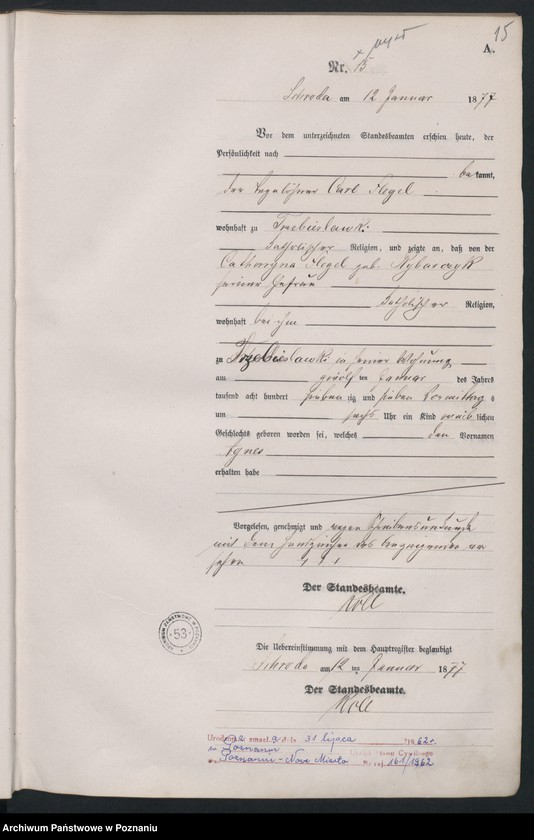 15
A.
Nr. 15
Schroda am 12 Januar 1877
Vor dem unterzeichneten Standesbeamten erschien heute, der
Persönlichkeit nach
bekannt,
der Tagelöhner Carl Flegel
wohnhaft zu Trzebieslawki
katholischer Religion, und zeigte an, daß von der
Catharyna Flegel geb. Rybarczyk
seiner Ehefrau
katholischer Religion,
wohnhaft bei ihm
zu Trzebieslawki in seiner Wohnung
am zwölf ten Januar des Jahres
tausend acht hundert sieben zig und sieben Vormittag s
um sechs Uhr ein Kind weib lichen
Geschlechts geboren worden sei, welches den Vornamen
Agnes
erhalten habe
Vorgelesen, genehmigt und wegen Schreibensunkunde
mit dem Handzeichen des Anzeigenden ver
sehen + + +
Der Standesbeamte.
Koll
Die Uebereinstimmung mit dem Hauptregister beglaubigt
Schroda am 12 ten Januar 1877
Der Standesbeamte.
Koll
ARCHIWUM PAŃSTWOWE W POZNANIU
53
zmarł a dnia 31 lipca 1962 r.
w Poznaniu
Urząd Stanu Cywilnego
Poznaniu - Nowe Miasto Nr rej. 161/1962
Archiwum Państwowe w Poznaniu